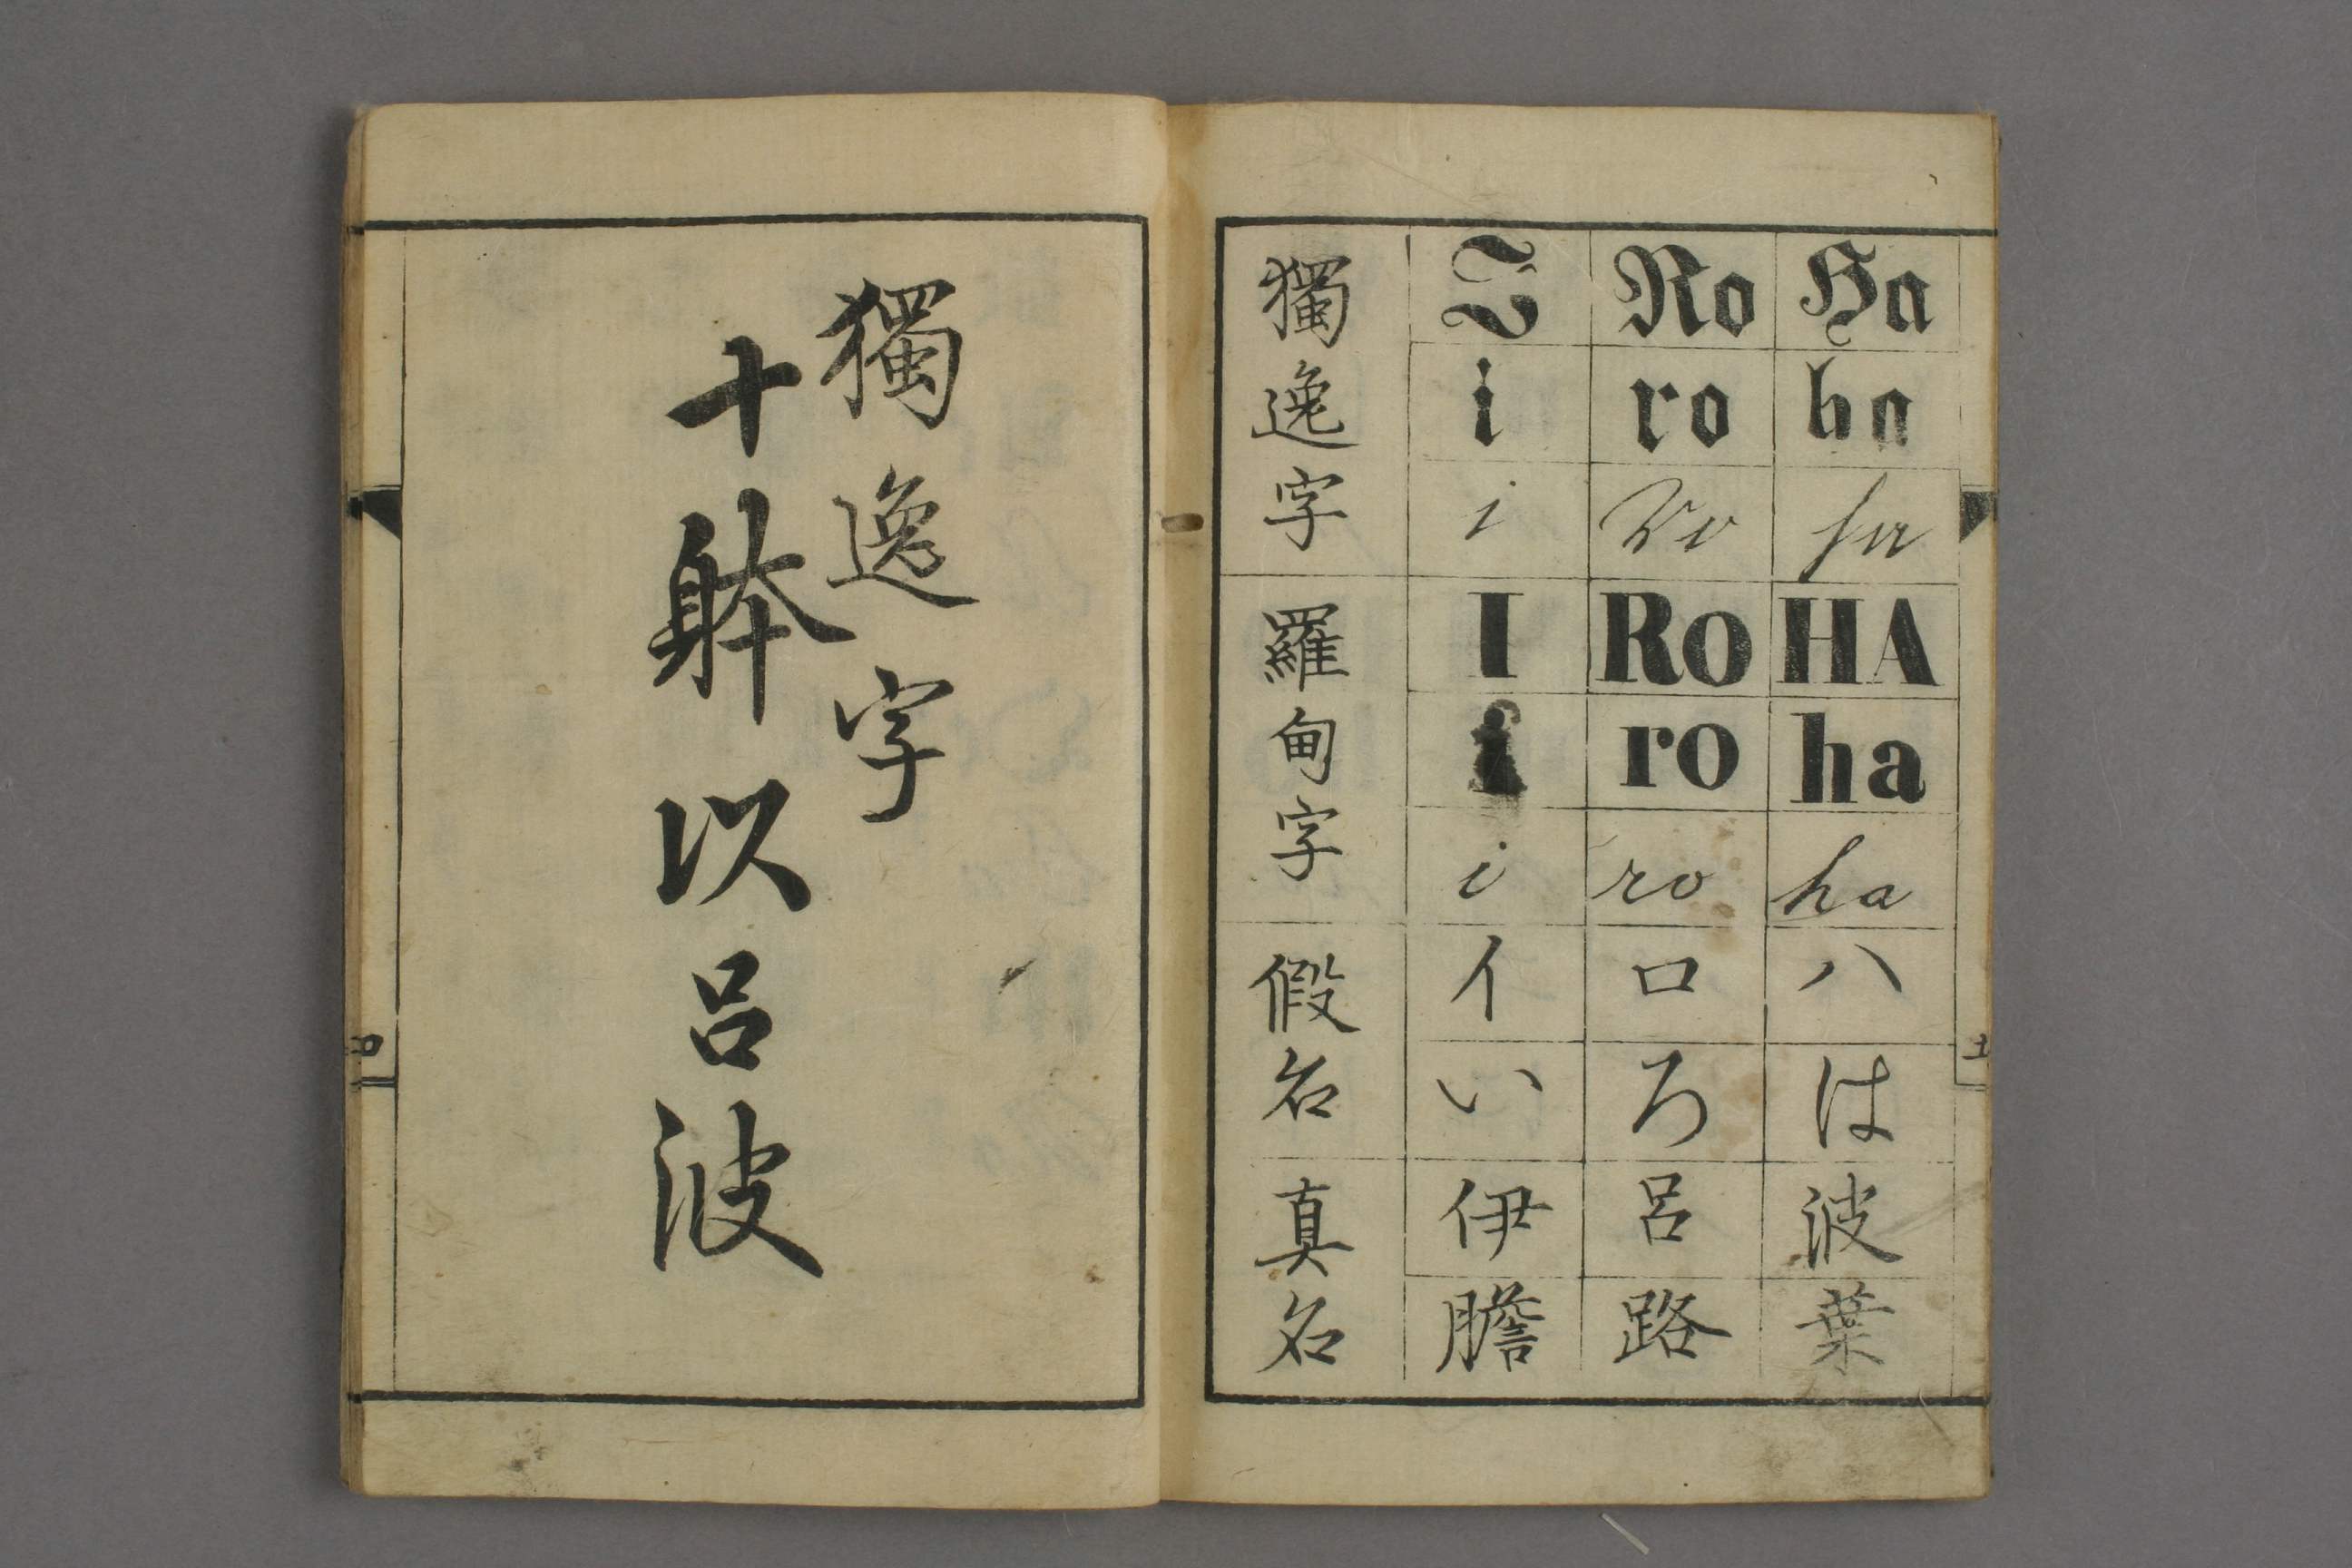 獨逸字
十躰以呂波
獨逸字 羅甸字 假名 真名
I i i I i i イ い 伊 膽
Ro ro ro Ro ro ro ロ ろ 呂 路
Ha ha ha HA ha ha ハ は 波 葉